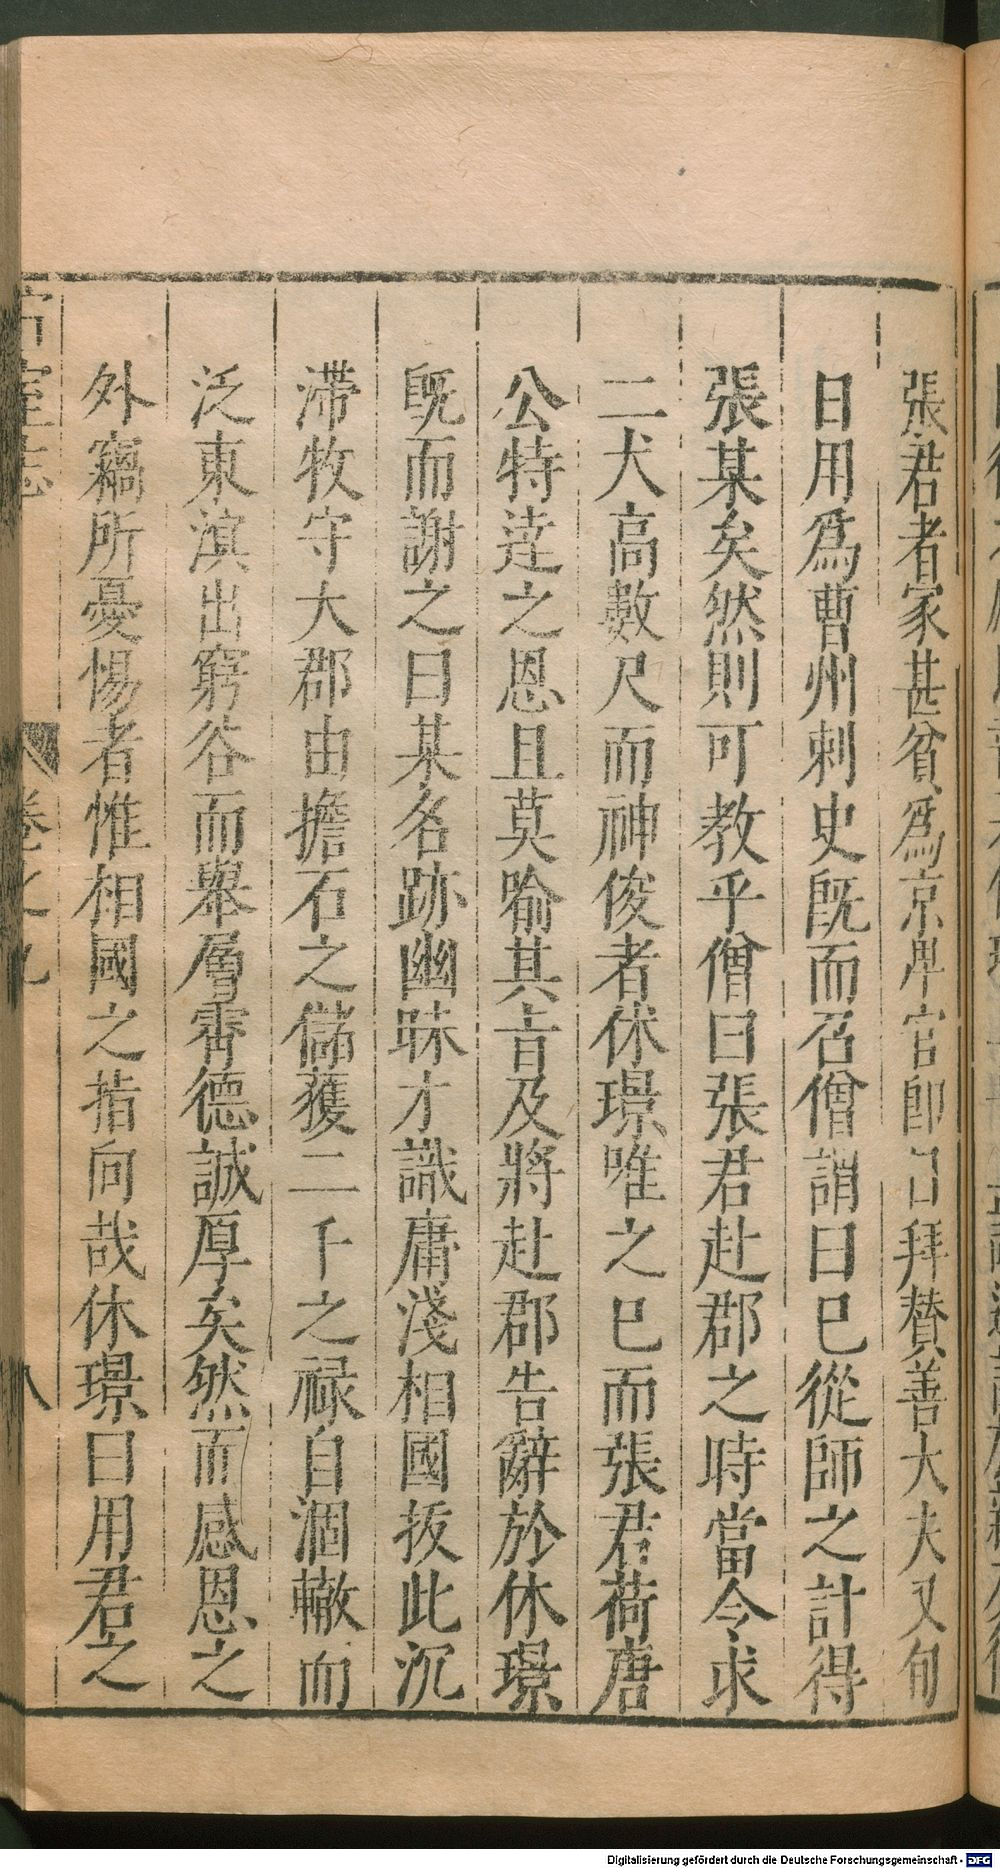 張君者家甚貧爲京卑官即日拜贊善大夫又旬
日用爲曹州刺史旣而召僧謂曰巳從師之計得
張某矣然則可教乎僧曰張君赴郡之時當令求
二犬高數尺而神俊者休璟唯之巳而張君荷唐
公特達之恩且莫喻其旨及將赴郡告辭於休璟
旣而謝之曰某名跡幽昧才識庸淺相國拔此沉
滯牧守大郡由擔石之儲獲二千之禄自涸轍而
泛東溟出窮谷而舉層霄德誠厚矣然而感恩之
外竊所憂惕者惟相國之指向哉休璟曰用君之
宣室志 卷之九 八
Digitalisierung gefördert durch die Deutsche Forschungsgemeinschaft - DFG